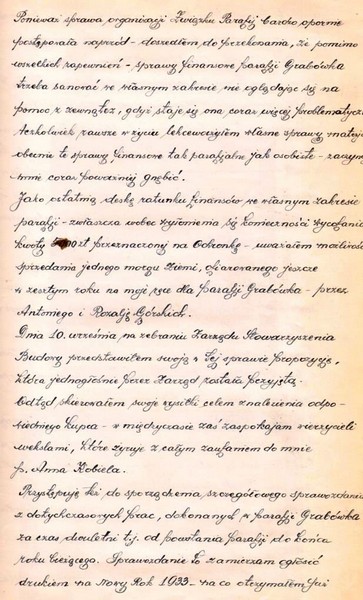 Ponieważ sprawa organizacji Związku Parafji bardzo opornie
postępowała naprzód - doszedłem do przekonania, że pomimo
wszelkich zapewnień - sprawy finansowe parafji Grabówka
trzeba sanować we własnym zakresie nie oglądając się na
pomoc z zewnątrz, gdyż staje się ona coraz więcej problematyczn
Aczkolwiek zawsze w życiu lekceważyłem własne sprawy materj
obecnie te sprawy finansowe tak parafjalne jak osobiste - zaczyn
mnie coraz poważniej gnębić.
Jako ostatnią deskę ratunku finansów we własnym zakresie
parafji - zwłaszcza wobec wyłonienia się konieczności wycofania
kwoty przeznaczony na Ochronkę - uważałem możliwość
sprzedania jednego morgu ziemi, ofiarowanego jeszcze
w zeszłym roku na moje ręce dla parafji Grabówka - przez
Antoniego i Rozalję Górskich.
Dnia 10. września na zebraniu Zarządu Stowarzyszenia
Budowy przedstawiłem swoją w tej sprawie propozycję,
która jednogłośnie przez Zarząd została przyjęta.
Odtąd skierowałem swoje wysiłki celem znalezienia odpo-
wiedniego kupca - w międzyczasie zaś zaspokajam wierzycieli
wekslami, które żyruje z całym zaufaniem do mnie
p. Anna Kobiela.
Przystępuję też do sporządzenia szczegółowego sprawozdania
z dotychczasowych prac, dokonanych w parafji Grabówka
za czas dwuletni t.j. od powstania parafji do końca
roku bieżącego. Sprawozdanie to zamierzam ogłosić
drukiem na Nowy Rok 1933 - na co otrzymałem już